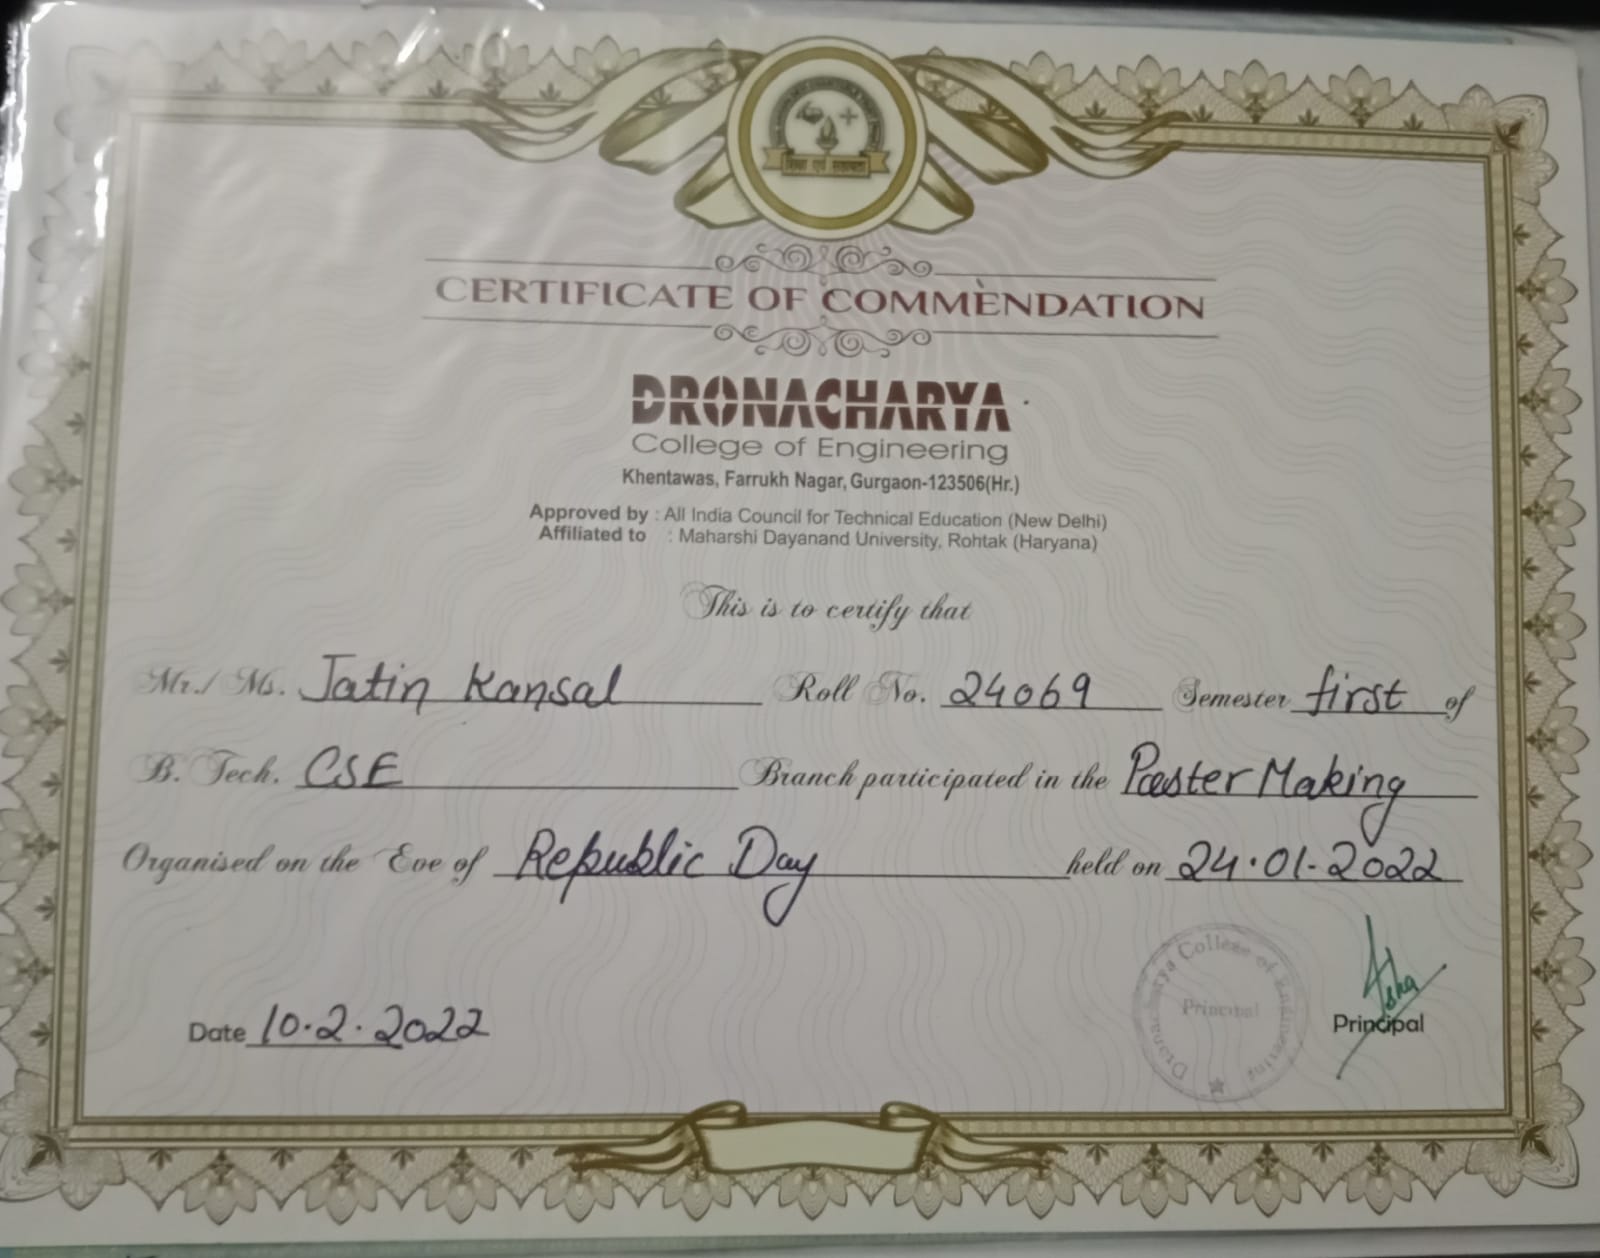 शिक्षा एवं
CERTIFICATE OF COMMENDATION
DRONACHARYA
College of Engineering
Khentawas, Farrukh Nagar, Gurgaon-123506(Hr.)
Approved by : All India Council for Technical Education (New Delhi)
Affiliated to : Maharshi Dayanand University, Rohtak (Haryana)
This is to certify that
Mr./ Ms. Jatin Kansal Roll No. 24069 Semester first of
B. Tech. CSE Branch participated in the Poster Making
Organised on the Eve of Republic Day held on 24.01-2022
Dronacharya College of Engineering
Principal
Date 10.2.2022
Principal